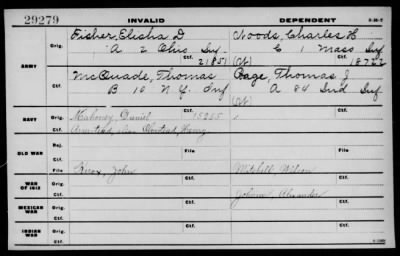 29279 INVALID DEPENDENT
Fisher, Elisha D Woods, Charles H
Orig. A 2 Ohio Inf C 1 Mass Inf
21851 (Ctf) 18722
ARMY
McQuade, Thomas Page, Thomas J
Ctf. B 10 N.Y. Inf A 84 Ind Inf
(Ctf)
Orig. Mahoney, Daniel 15265
NAVY
Ctf. alias Henry
Orig. File
OLD WAR
File Knox, John Ctf. Mitchell, Wilson
WAR OF 1812
Orig. Johnson, Alexander
Ctf.
MEXICAN WAR
Orig.
Ctf.
INDIAN WAR
Orig.
Ctf.